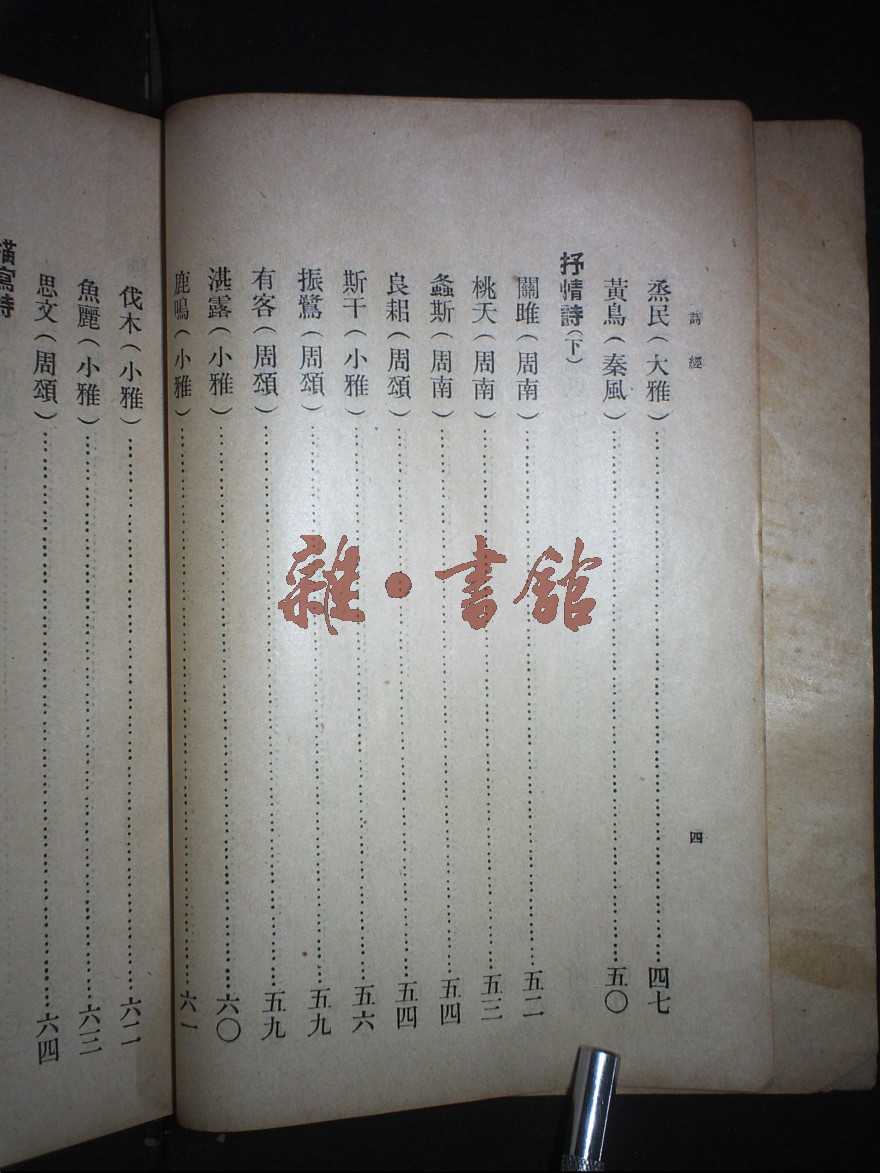 詩經
四
烝民(大雅)…………四七
黃鳥(秦風)…………五〇
抒情詩(下)
關雎(周南)…………五二
桃夭(周南)…………五三
螽斯(周南)…………五四
良耜(周頌)…………五四
斯干(小雅)…………五六
振鷺(周頌)…………五九
有客(周頌)…………五九
湛露(小雅)…………六〇
鹿鳴(小雅)…………六一
伐木(小雅)…………六二
魚麗(小雅)…………六三
思文(周頌)…………六四
描寫詩
雜·書館